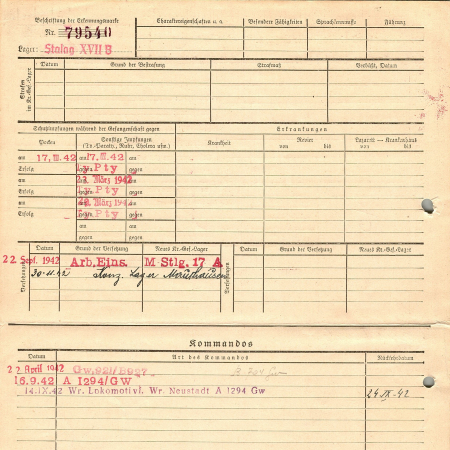 Beschriftung der Erkennungsmarke
Nr. 79540
Lager: Stalag XVII B
Charaktereigenschaften u. a.
Besondere Fähigkeiten
Sprachkenntnisse
Führung
Strafen im Kr.-Gef.-Lager
Datum
Grund der Bestrafung
Strafmaß
Verbüßt, Datum
Schutzimpfungen während der Gefangenschaft gegen
Erkrankungen
Pocken
Sonstige Impfungen
(Ty.-Paraty., Ruhr, Cholera usw.)
Krankheit
Revier
von bis
Lazarett — Krankenhaus
von bis
am 17. III. 42 am 17. III. 42 am
Erfolg gegen Ty. Pty gegen
am am 23. März 1942 am
Erfolg gegen Ty. Pty gegen
am am März 194 am
Erfolg gegen Ty. Pty gegen
Versetzungen
Datum
Grund der Versetzung
Neues Kr.-Gef.-Lager
Versetzungen
Datum
Grund der Versetzung
Neues Kr.-Gef.-Lager
22. Sept. 1942 Arb. Eins. M Stlg. 17 A
30.11.42 Konz. Lager Mauthausen
Kommandos
Datum
Art des Kommandos
Rückkehrdatum
22. April 1942 Gw. 921/B
16.9.42 A 1294/GW
14.IX.42 Wr. Lokomotivf. Wr. Neustadt A 1294 Gw 24 IX. 42